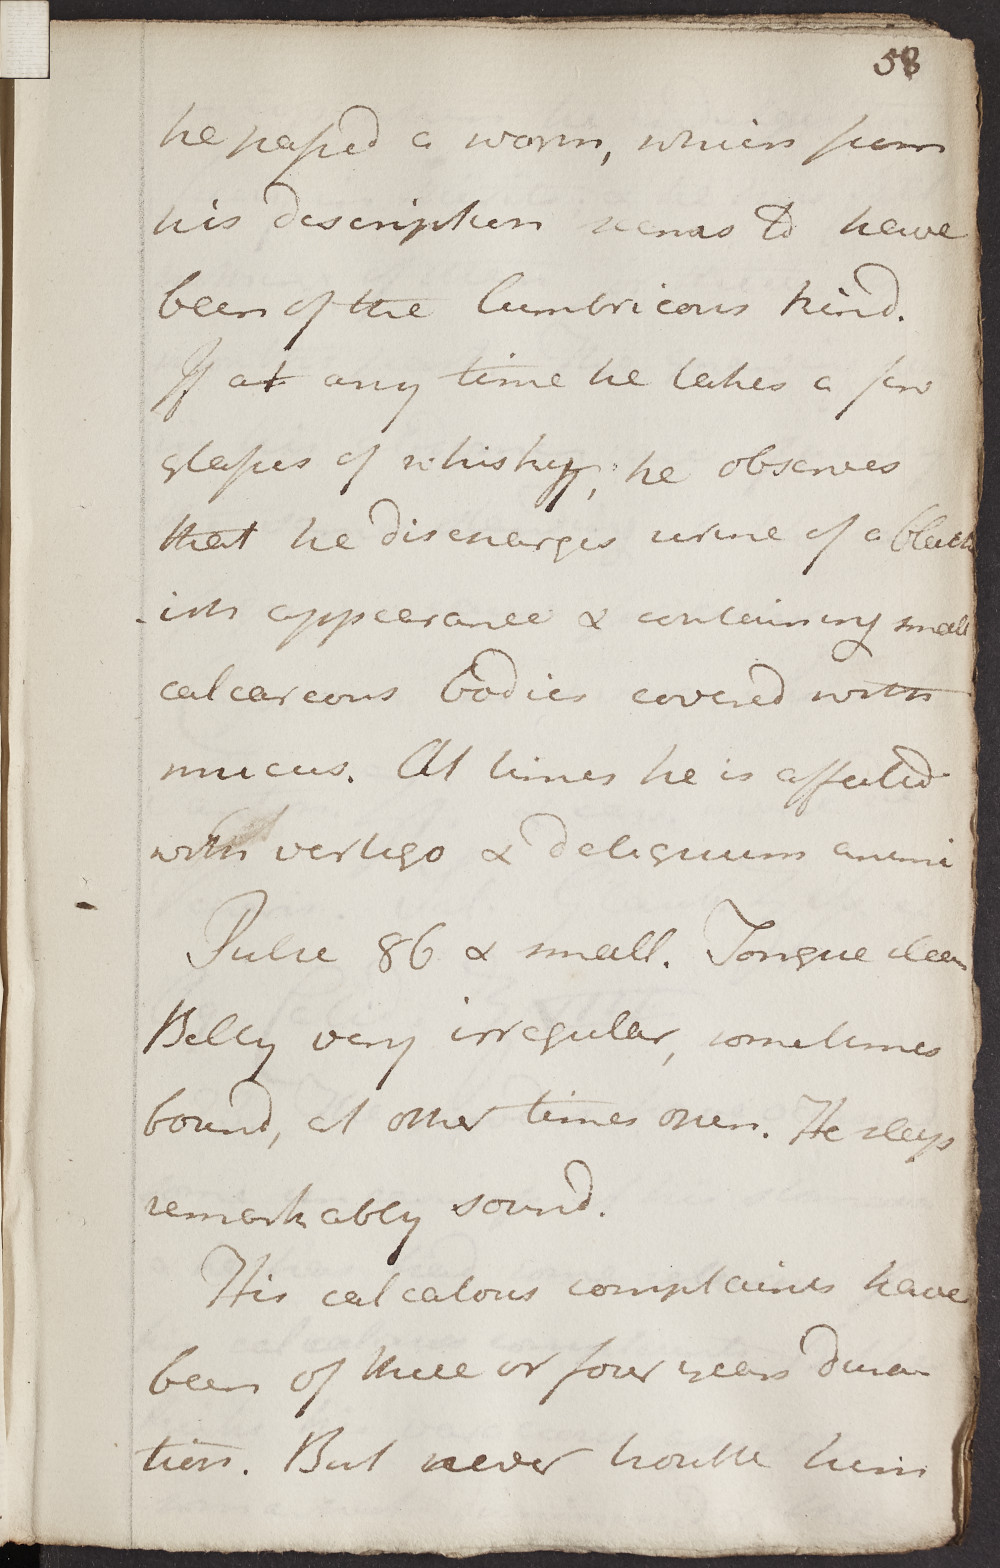 58
he passed a worm, which from
his description seems to have
been of the lumbricous kind.
If at any time he takes a few
glasses of whisky, he observes
that he discharges urine of a black
-ish appearance & containing small
calcareous bodies covered with
mucus. At times he is affected
with vertigo & deliquium animi
Pulse 86 & small. Tongue clean
Belly very irregular, sometimes
bound, at other times open. He sleeps
remarkably sound.
His calcalous complaints have
been of three or four years dura
tion. But never trouble him